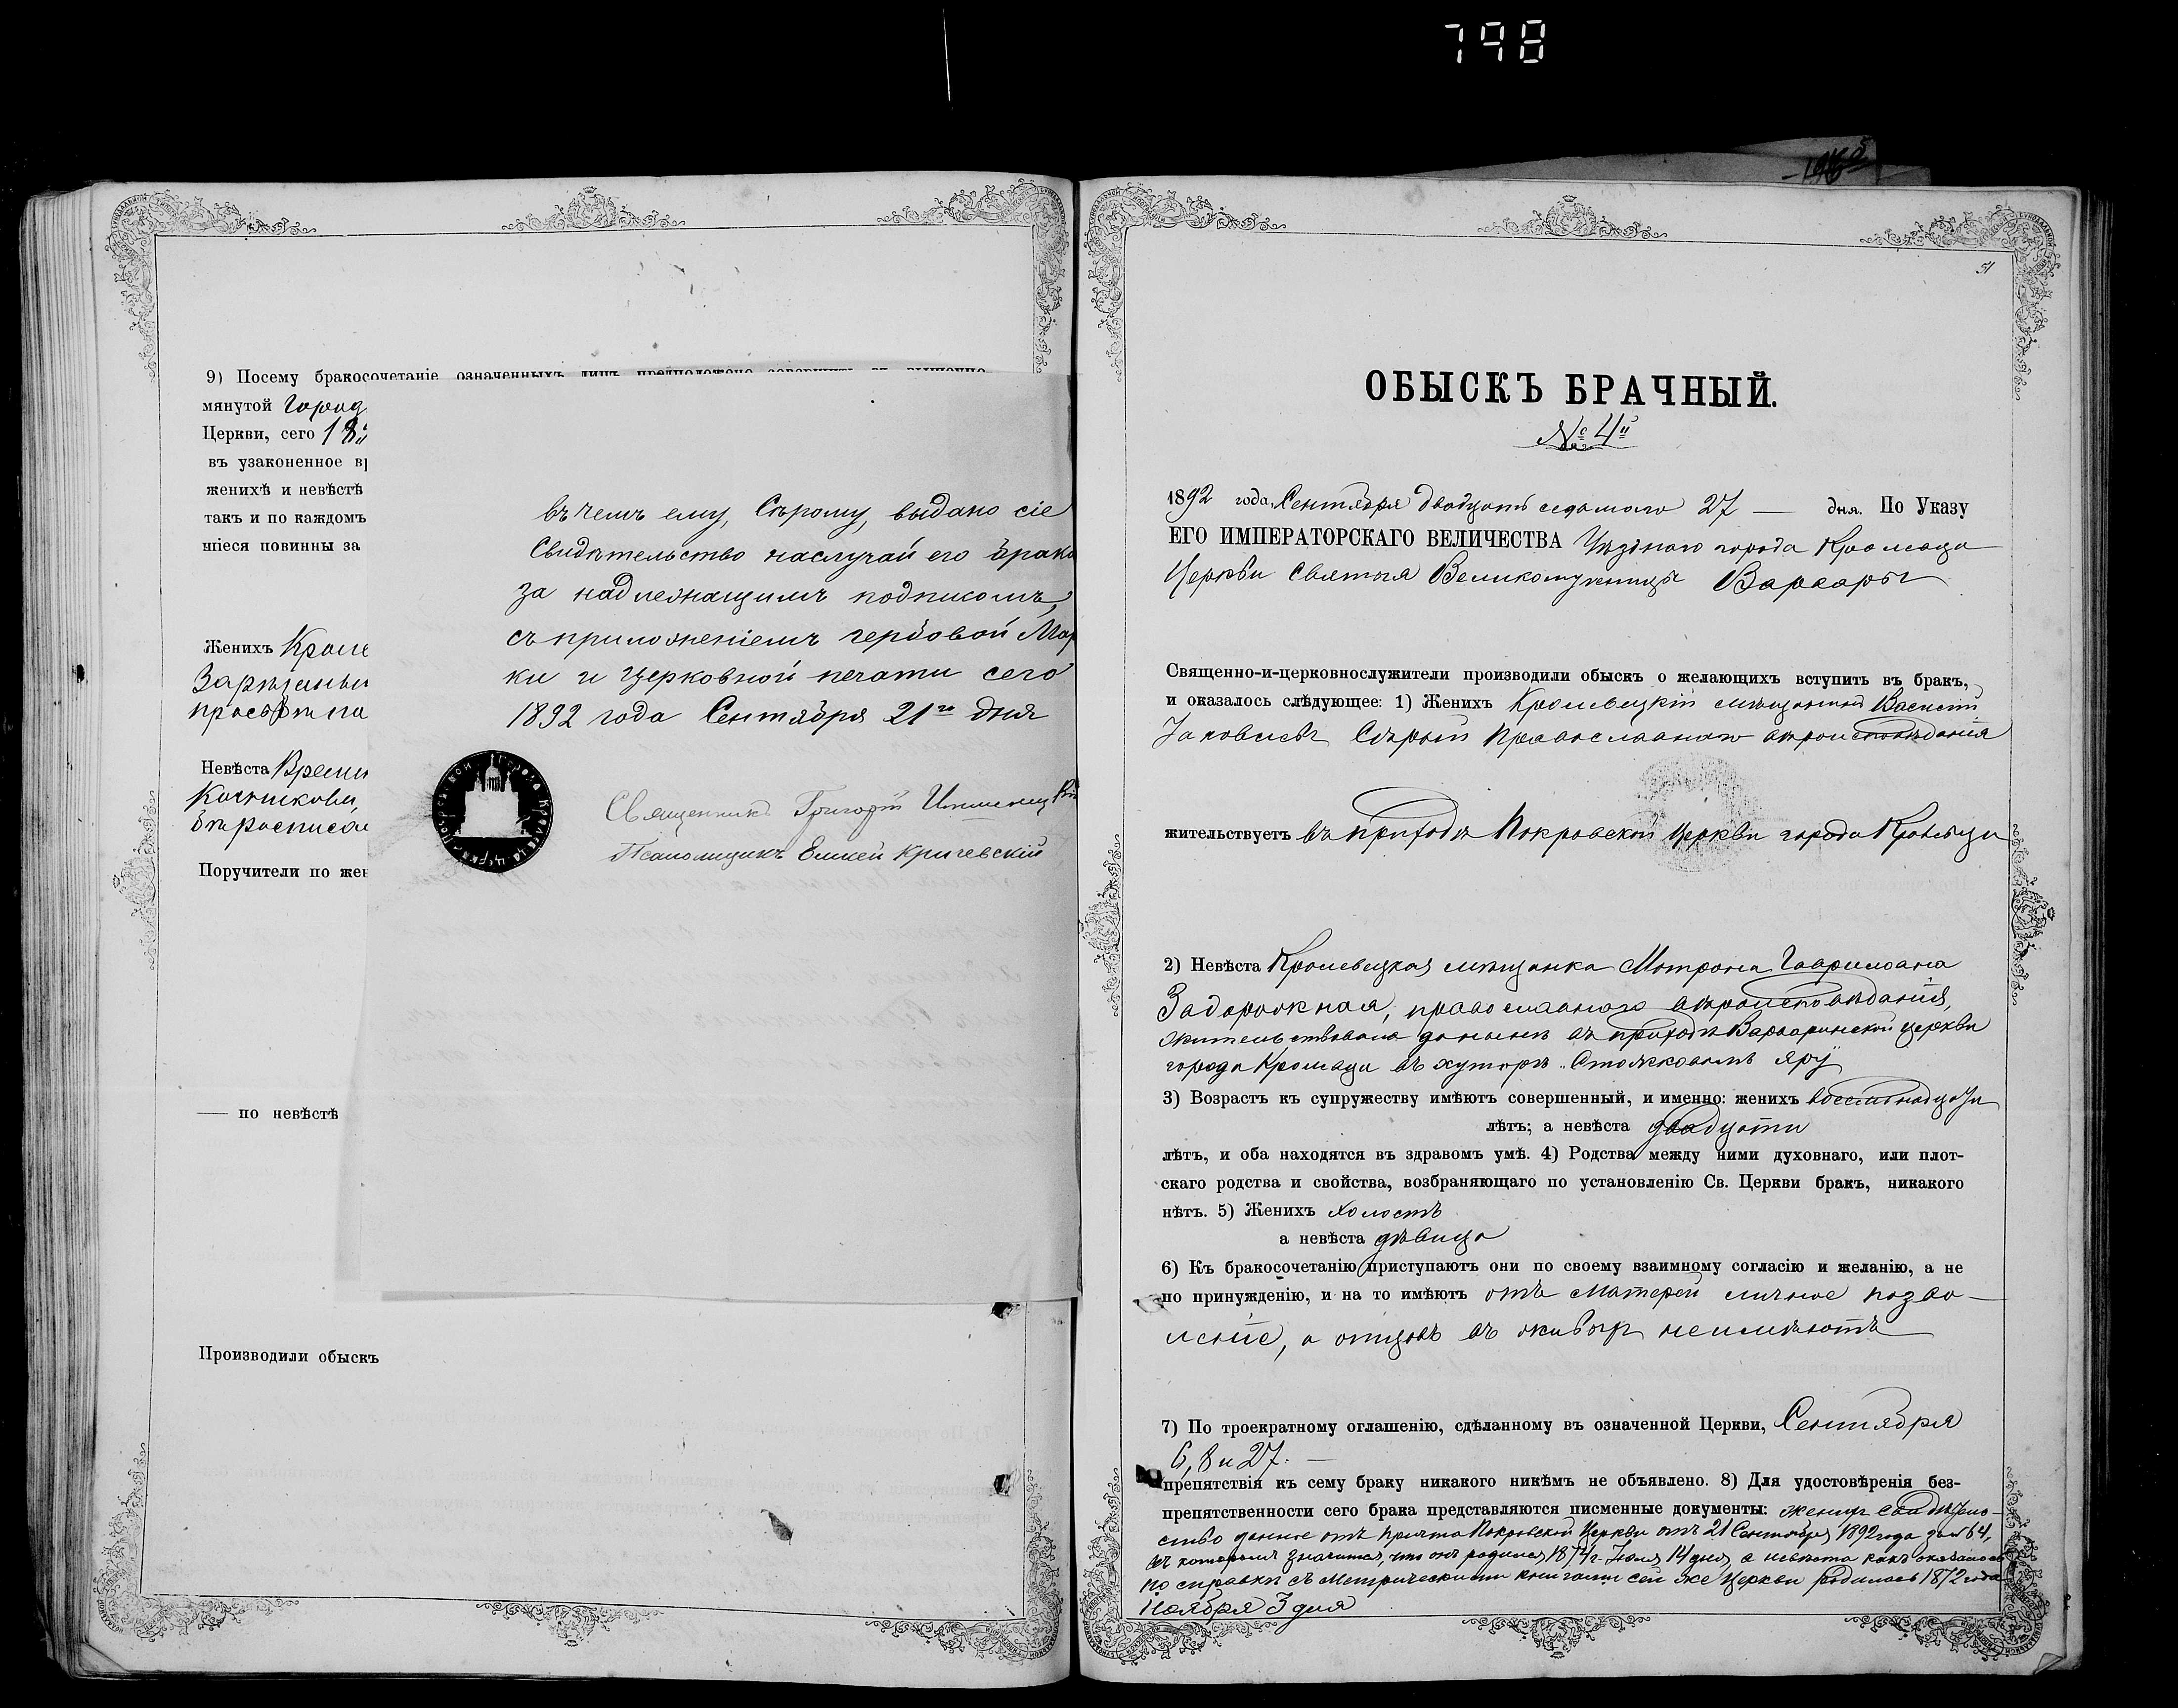 798
9) Посему бракосочетаніе означенныхъ лицъ предположено совершить въ вышепо-
мянутой Город
Церкви, сего 18
въ узаконенное в
женихѣ и невѣстѣ
такъ и по каждомъ
шіеся повинны за
Женихъ Кроле
Невѣста Време
Поручители по жен
— по невѣстѣ
Производили обыскъ
въ чемъ ему, Сѣрому, выдано сіе
Свидѣтельство наслучай его брака
за надлежащимъ подписомъ,
съ приложеніемъ гербовой Мар
ки и церковной печати сего
1892 года Сентября 21го дня
Священникъ Григорій
Псаломщикъ Елисей Кричевскій
51
ОБЫСКЪ БРАЧНЫЙ.
№ 4й
1892 года, Сентября двадцать седьмаго 27 — дня. По Указу
ЕГО ИМПЕРАТОРСКАГО ВЕЛИЧЕСТВА Уѣзднаго города Кролевца
Церкви Святыя Великомученицы Варвары
Священно-и-церковнослужители производили обыскъ о желающихъ вступить въ бракъ,
и оказалось слѣдующее: 1) Женихъ Кролевецкій мѣщанинъ Василій
Іаковлевъ Сѣрый православнаго вѣроисповѣданія
жительствуетъ въ приходѣ Покровской Церкви города Кролевца
2) Невѣста Кролевецкая мѣщанка Матрона Гавриловна
Задорожная, православнаго вѣроисповѣданія,
жительствовала донынѣ въ приходѣ Варваринской церкви
города Кролевца въ хуторѣ Яру
3) Возрастъ къ супружеству имѣютъ совершенный, и именно: женихъ восемнадцати
лѣтъ; а невѣста двадцати
лѣтъ, и оба находятся въ здравомъ умѣ. 4) Родства между ними духовнаго, или плот-
скаго родства и свойства, возбраняющаго по установленію Св. Церкви бракъ, никакого
нѣтъ. 5) Женихъ холостъ
а невѣста дѣвица
6) Къ бракосочетанію приступаютъ они по своему взаимному согласію и желанію, а не
по принужденію, и на то имѣютъ отъ Матерей личное позво-
леніе, а отцовъ въ живыхъ неимѣютъ
7) По троекратному оглашенію, сдѣланному въ означенной Церкви, Сентября
6, 8 и 27. —
препятствія къ сему браку никакого никѣмъ не объявлено. 8) Для удостовѣренія без-
препятственности сего брака представляются писменные документы: женихъ свидѣтель-
ство данное отъ причта Покровской Церкви отъ 21 Сентября 1892 года за № 64,
въ которомъ значится, что онъ родился 1874 г. Іюля 14 дня, а невѣста какъ оказалось
по справкѣ съ Метрическими книгами сей же Церкви родилась 1872 года
Ноября 3 дня